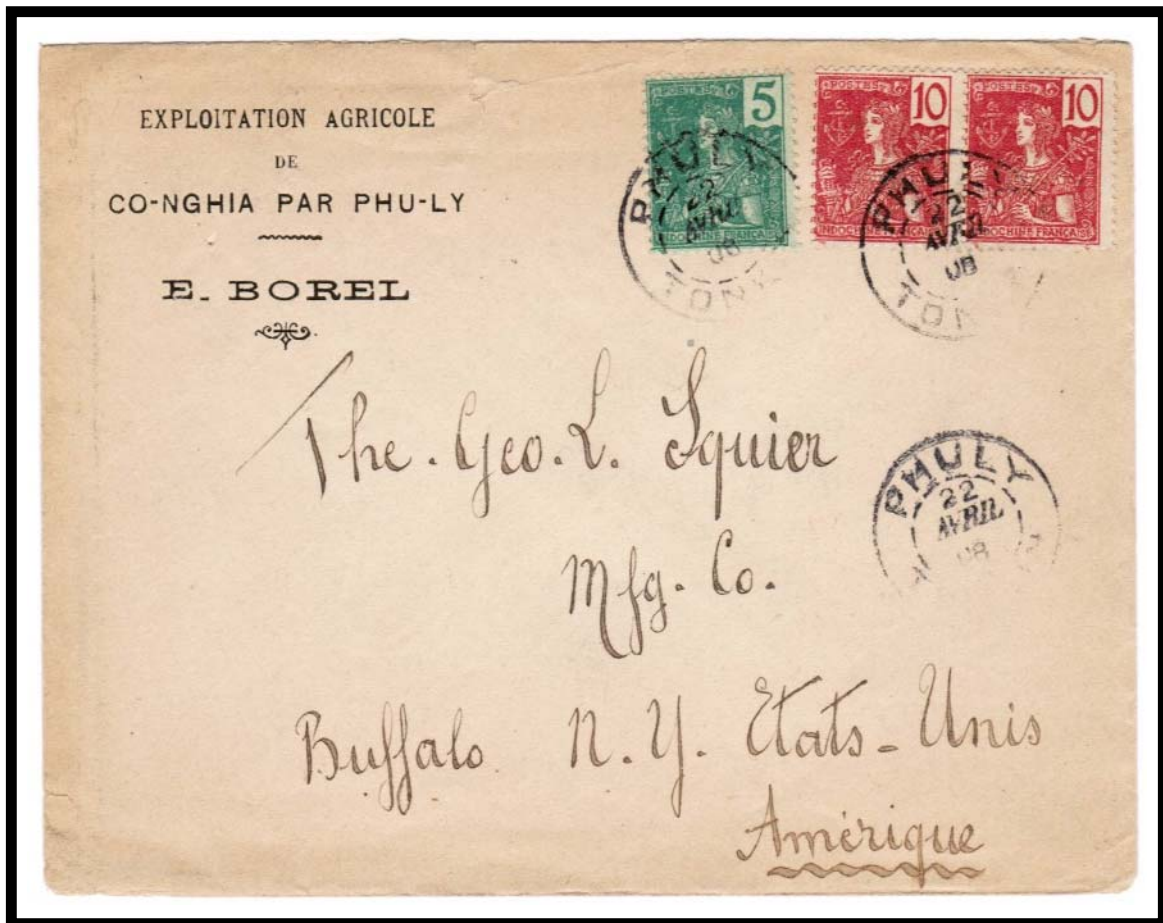 EXPLOITATION AGRICOLE
DE
CO-NGHIA PAR PHU-LY
E. BOREL
POSTES
5
INDOCHINE FRANÇAISE
POSTES
10
INDOCHINE FRANÇAISE
POSTES
10
INDOCHINE FRANÇAISE
PHULY
22
AVRIL
08
PHULY
22
AVRIL
08
The. Geo. L. Squier
Mfg. Co.
Buffalo N. Y. Etats-Unis
Amérique
PHULY
22
AVRIL
08